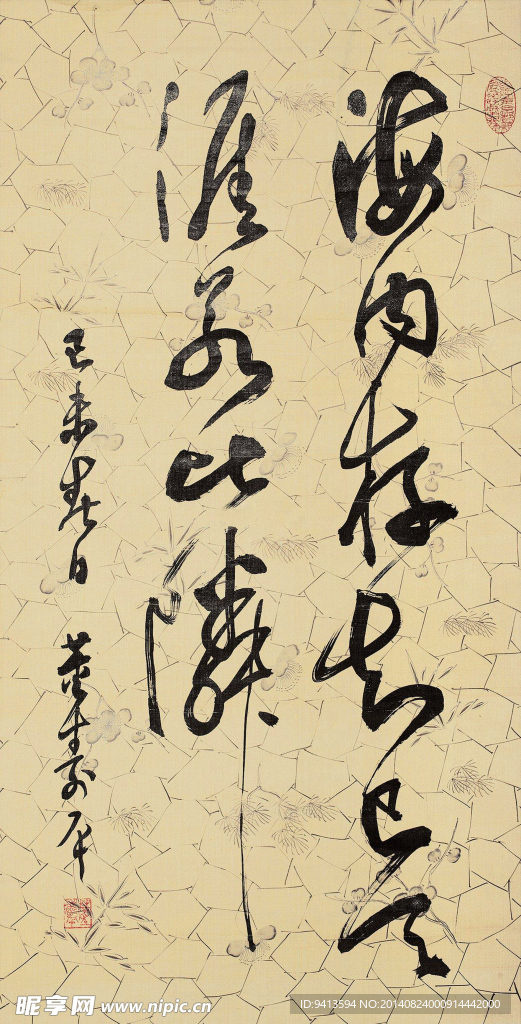 海内存知己天
涯若比邻
己未春日 董寿平
昵享网 www.nipic.cn
ID:9413594 NO:20140824000914442000